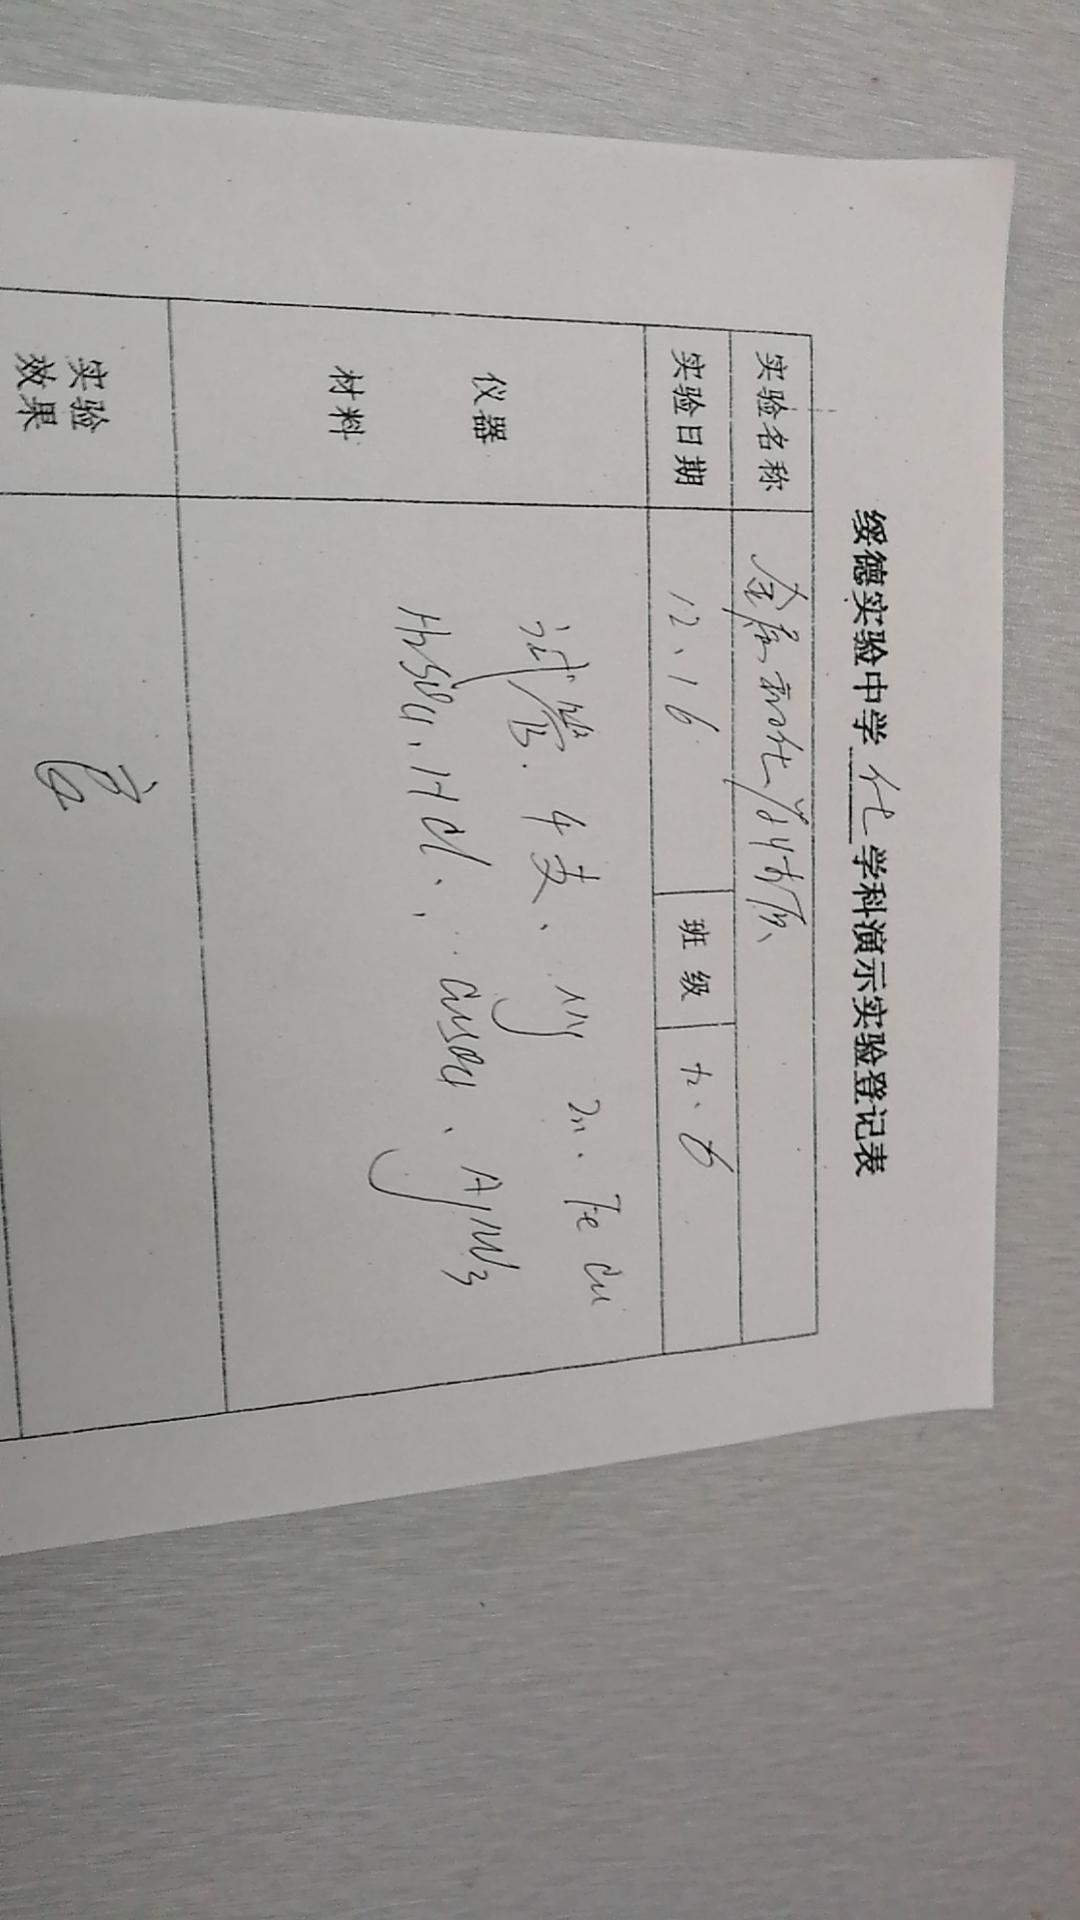 绥德实验中学 化 学科演示实验登记表
实验名称 金属的化学性质
实验日期 12.16 班级 九.6
仪器 试管.4支、Mg Zn. Fe Cu
材料 H2SO4.HCl.、CuSO4、AgNO3
实验
效果